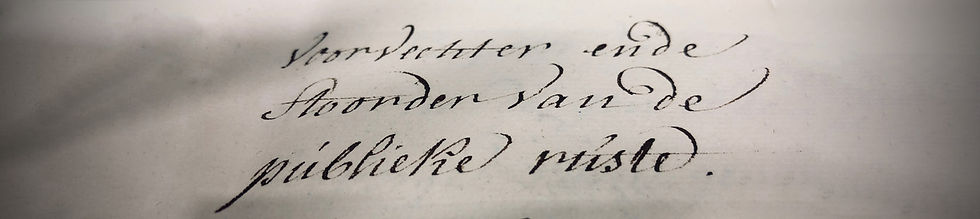 voorvechter ende
stoorder van de
públieke rúste.